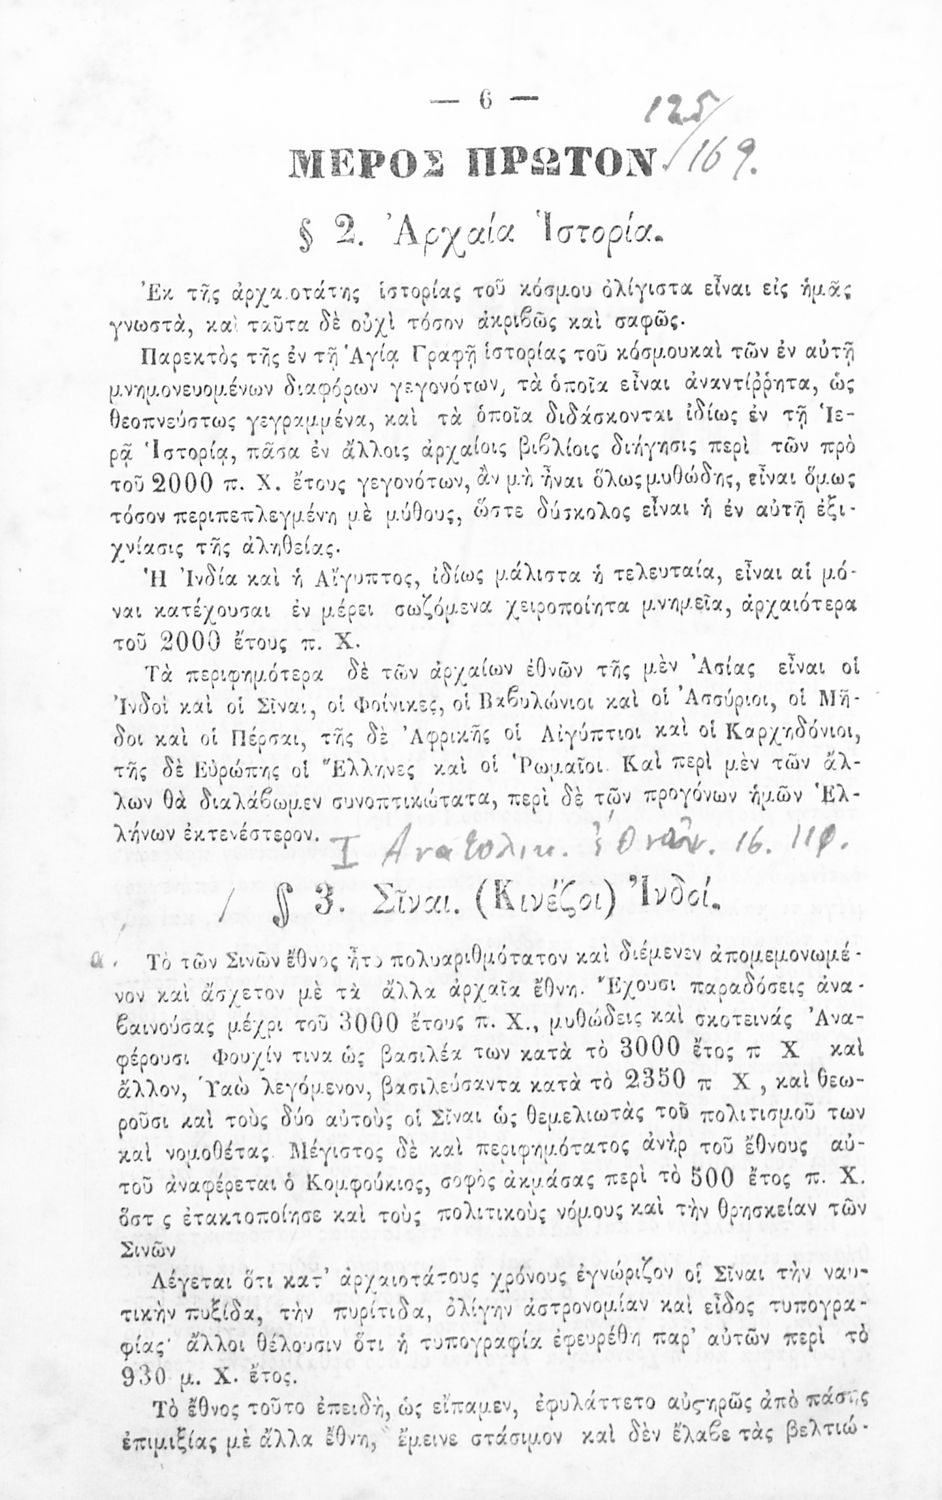 — 6 —
125/
169.
ΜΕΡΟΣ ΠΡΩΤΟΝ.
§ 2. Ἀρχαία Ἱστορία.
Ἐκ τῆς ἀρχαιοτάτης ἱστορίας τοῦ κόσμου ὀλίγιστα εἶναι εἰς ἡμᾶς
γνωστὰ, καὶ ταῦτα δὲ οὐχὶ τόσον ἀκριβῶς καὶ σαφῶς.
Παρεκτὸς τῆς ἐν τῇ Ἁγίᾳ Γραφῇ ἱστορίας τοῦ κόσμουκαὶ τῶν ἐν αὐτῇ
μνημονευομένων διαφόρων γεγονότων, τὰ ὁποῖα εἶναι ἀναντίῤῥητα, ὡς
θεοπνεύστως γεγραμμένα, καὶ τὰ ὁποῖα διδάσκονται ἰδίως ἐν τῇ Ἱε-
ρᾷ Ἱστορίᾳ, πᾶσα ἐν ἄλλοις ἀρχαίοις βιβλίοις διήγησις περὶ τῶν πρὸ
τοῦ 2000 π. Χ. ἔτους γεγονότων, ἂν μὴ ἦναι ὅλως μυθώδης, εἶναι ὅμως
τόσον περιπεπλεγμένη μὲ μύθους, ὥστε δύσκολος εἶναι ἡ ἐν αὐτῇ ἐξι-
χνίασις τῆς ἀληθείας.
Ἡ Ἰνδία καὶ ἡ Αἴγυπτος, ἰδίως μάλιστα ἡ τελευταία, εἶναι αἱ μό-
ναι κατέχουσαι ἐν μέρει σωζόμενα χειροποίητα μνημεῖα, ἀρχαιότερα
τοῦ 2000 ἔτους π. Χ.
Τὰ περιφημότερα δὲ τῶν ἀρχαίων ἐθνῶν τῆς μὲν Ἀσίας εἶναι οἱ
Ἰνδοὶ καὶ οἱ Σῖναι, οἱ Φοίνικες, οἱ Βαβυλώνιοι καὶ οἱ Ἀσσύριοι, οἱ Μῆ-
δοι καὶ οἱ Πέρσαι, τῆς δὲ Ἀφρικῆς οἱ Αἰγύπτιοι καὶ οἱ Καρχηδόνιοι,
τῆς δὲ Εὐρώπης οἱ Ἕλληνες καὶ οἱ Ῥωμαῖοι. Καὶ περὶ μὲν τῶν ἄλ-
λων θὰ διαλάβωμεν συνοπτικώτατα, περὶ δὲ τῶν προγόνων ἡμῶν Ἑλ-
λήνων ἐκτενέστερον.
I Ἀνατολικ. ἐθνῶν. 16.
/ § 3. Σῖναι. (Κινέζοι) Ἰνδοί.
α. Τὸ τῶν Σινῶν ἔθνος ἦτο πολυαριθμότατον καὶ διέμενεν ἀπομεμονωμέ-
νον καὶ ἄσχετον μὲ τὰ ἄλλα ἀρχαῖα ἔθνη. Ἔχουσι παραδόσεις ἀνα-
βαινούσας μέχρι τοῦ 3000 ἔτους π. Χ., μυθώδεις καὶ σκοτεινάς Ἀνα-
φέρουσι Φουχίν τινα ὡς βασιλέα των κατὰ τὸ 3000 ἔτος π Χ καὶ
ἄλλον, Ὑαὼ λεγόμενον, βασιλεύσαντα κατὰ τὸ 2350 π Χ , καὶ θεω-
ροῦσι καὶ τοὺς δύο αὐτοὺς οἱ Σῖναι ὡς θεμελιωτὰς τοῦ πολιτισμοῦ των
καὶ νομοθέτας. Μέγιστος δὲ καὶ περιφημότατος ἀνὴρ τοῦ ἔθνους αὐ-
τοῦ ἀναφέρεται ὁ Κομφούκιος, σοφὸς ἀκμάσας περὶ τὸ 500 ἔτος π. Χ.
ὅστ ς ἐτακτοποίησε καὶ τοὺς πολιτικοὺς νόμους καὶ τὴν θρησκείαν τῶν
Σινῶν
Λέγεται ὅτι κατ' ἀρχαιοτάτους χρόνους ἐγνώριζον οἱ Σῖναι τὴν ναυ-
τικὴν πυξίδα, τὴν πυρίτιδα, ὀλίγην ἀστρονομίαν καὶ εἶδος τυπογρα-
φίας· ἄλλοι θέλουσιν ὅτι ἡ τυπογραφία ἐφευρέθη παρ' αὐτῶν περὶ τὸ
930 μ. Χ. ἔτος.
Τὸ ἔθνος τοῦτο ἐπειδὴ, ὡς εἴπαμεν, ἐφυλάττετο αὐςηρῶς ἀπὸ πάσης
ἐπιμιξίας μὲ ἄλλα ἔθνη, ἔμεινε στάσιμον καὶ δὲν ἔλαβε τὰς βελτιώ-